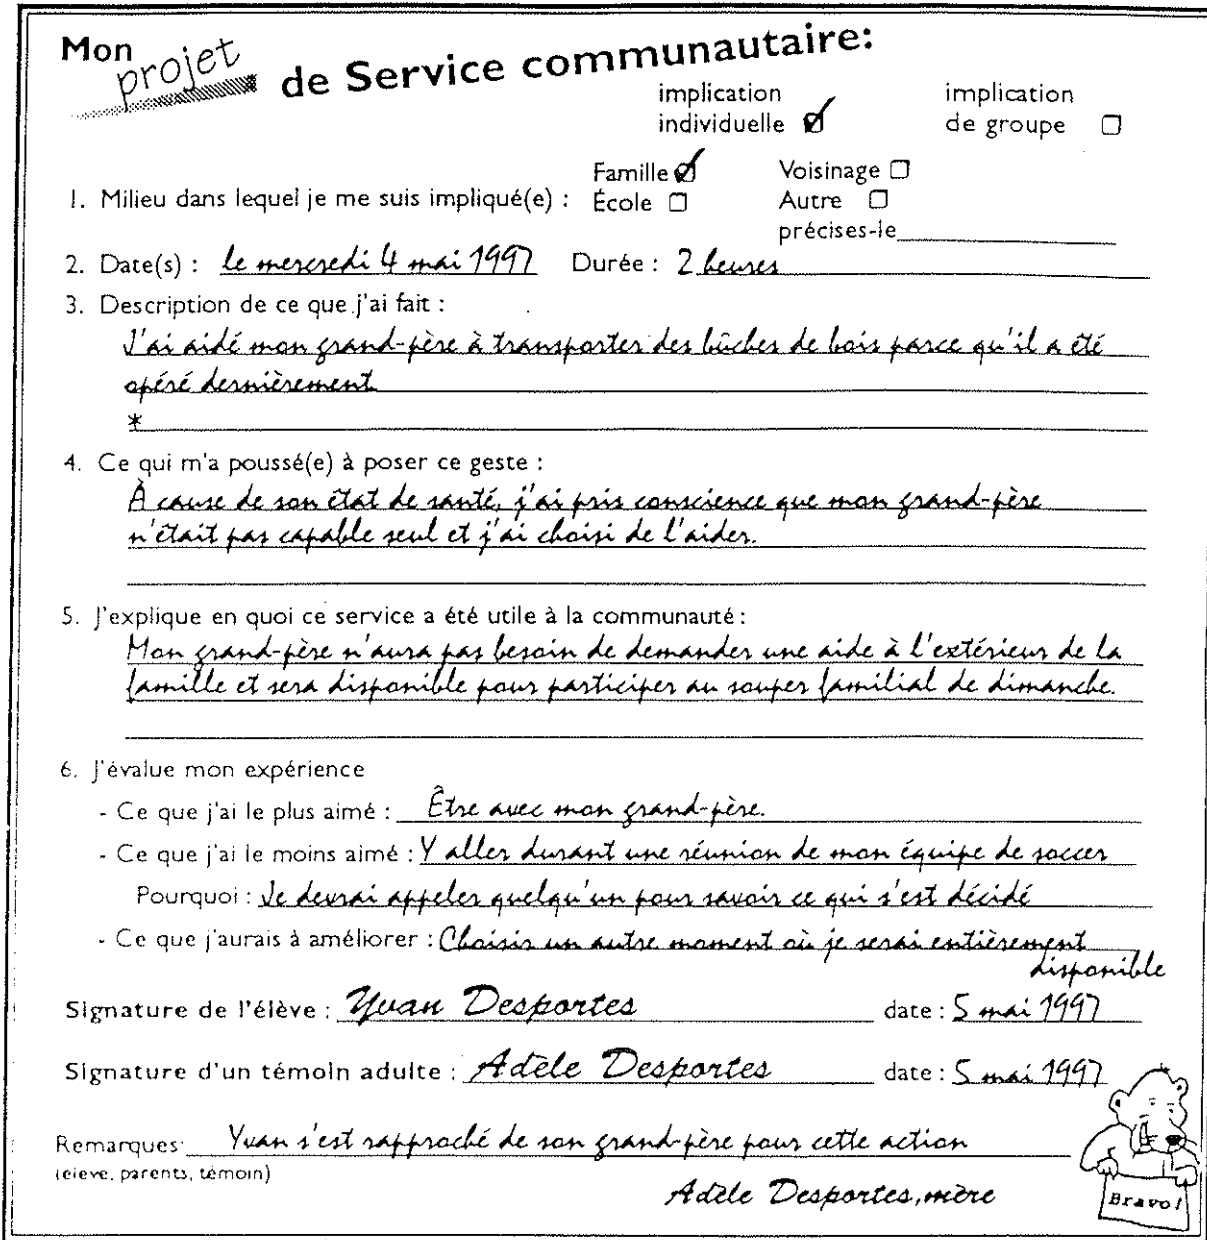 Mon projet de Service communautaire:
implication individuelle ☑ implication de groupe ☐
1. Milieu dans lequel je me suis impliqué(e) : Famille ☑ Voisinage ☐
École ☐ Autre ☐
précises-le
2. Date(s) : le mercredi 4 mai 1997 Durée : 2 heures
3. Description de ce que j'ai fait :
J'ai aidé mon grand-père à transporter des bûches de bois parce qu'il a été
opéré dernièrement
*
4. Ce qui m'a poussé(e) à poser ce geste :
À cause de son état de santé, j'ai pris conscience que mon grand-père
n'était pas capable seul et j'ai choisi de l'aider.
5. J'explique en quoi ce service a été utile à la communauté :
Mon grand-père n'aura pas besoin de demander une aide à l'extérieur de la
famille et sera disponible pour participer au souper familial de dimanche.
6. J'évalue mon expérience
- Ce que j'ai le plus aimé : Être avec mon grand-père.
- Ce que j'ai le moins aimé : Y aller durant une réunion de mon équipe de soccer
Pourquoi : Je devrai appeler quelqu'un pour savoir ce qui s'est décidé
- Ce que j'aurais à améliorer : Choisir un autre moment où je serai entièrement
disponible
Signature de l'élève : Yvan Desportes date : 5 mai 1997
Signature d'un témoin adulte : Adèle Desportes date : 5 mai 1997
Remarques: Yvan s'est rapproché de son grand-père pour cette action
(élève, parents, témoin)
Adèle Desportes, mère
Bravo!